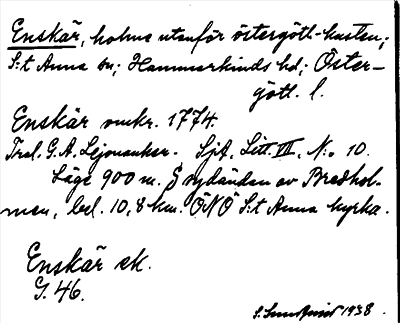 Enskär, holme utanför östergötl-kusten;
S:t Anna sn; Hammarkinds hd; Öster-
götl. l.
Enskär omkr. 1774.
Trol. G. A. Lejonanker. SjA, Litt III, N:o 10.
Läge 900 m. S sydänden av Bredhol-
men, bel. 10,8 km. ÖNÖ S:t Anna kyrka.
Enskär ek.
G. 46.
S. 1938